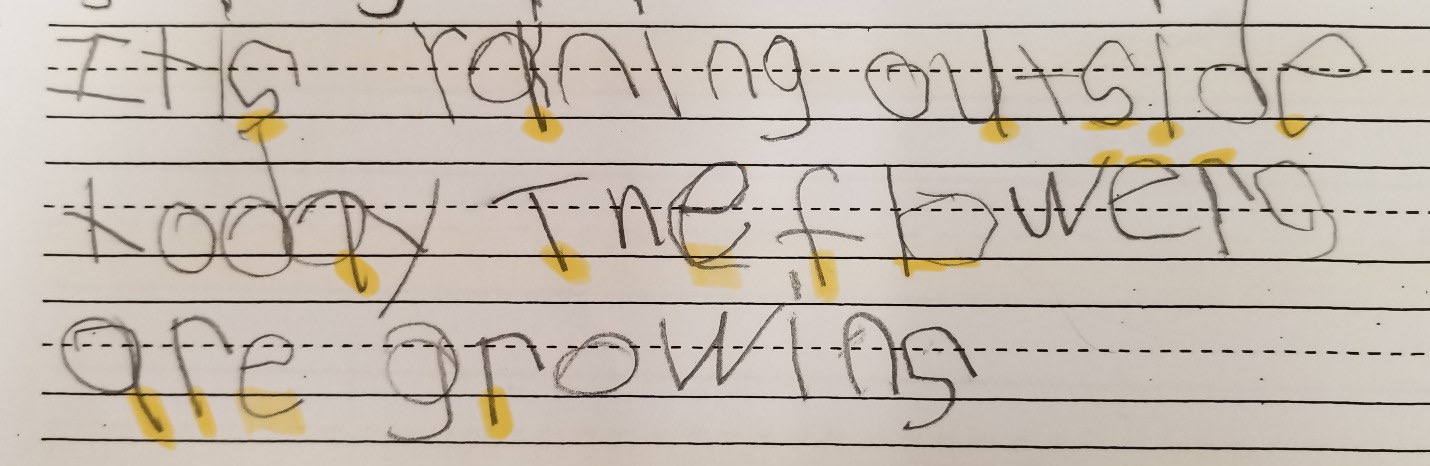 It is raning outside
today The flowers
are growing